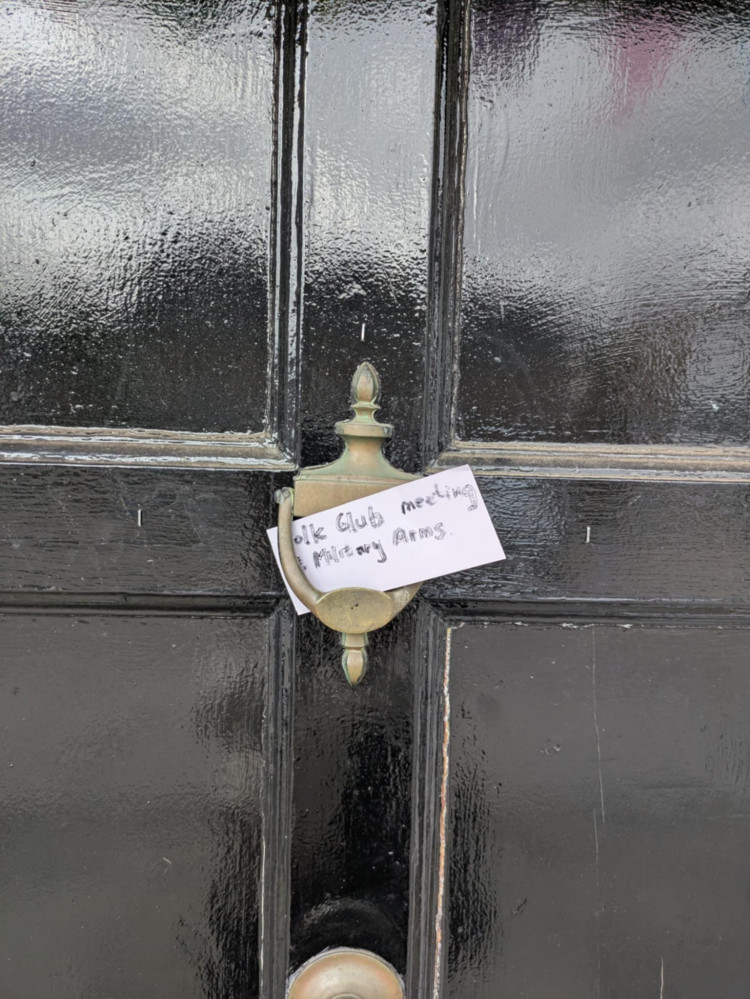 olk Club meeting
Military Arms.